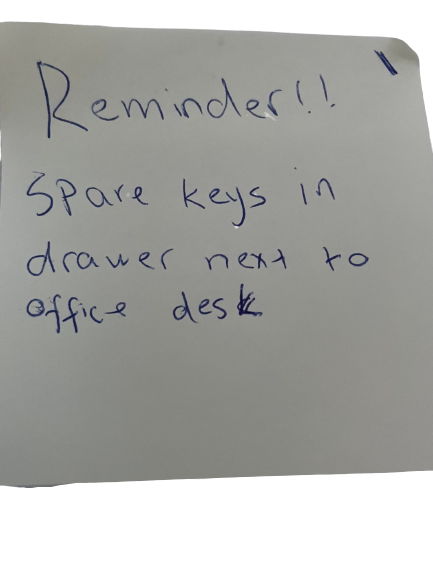 Reminder!!
Spare keys in
drawer next to
office desk